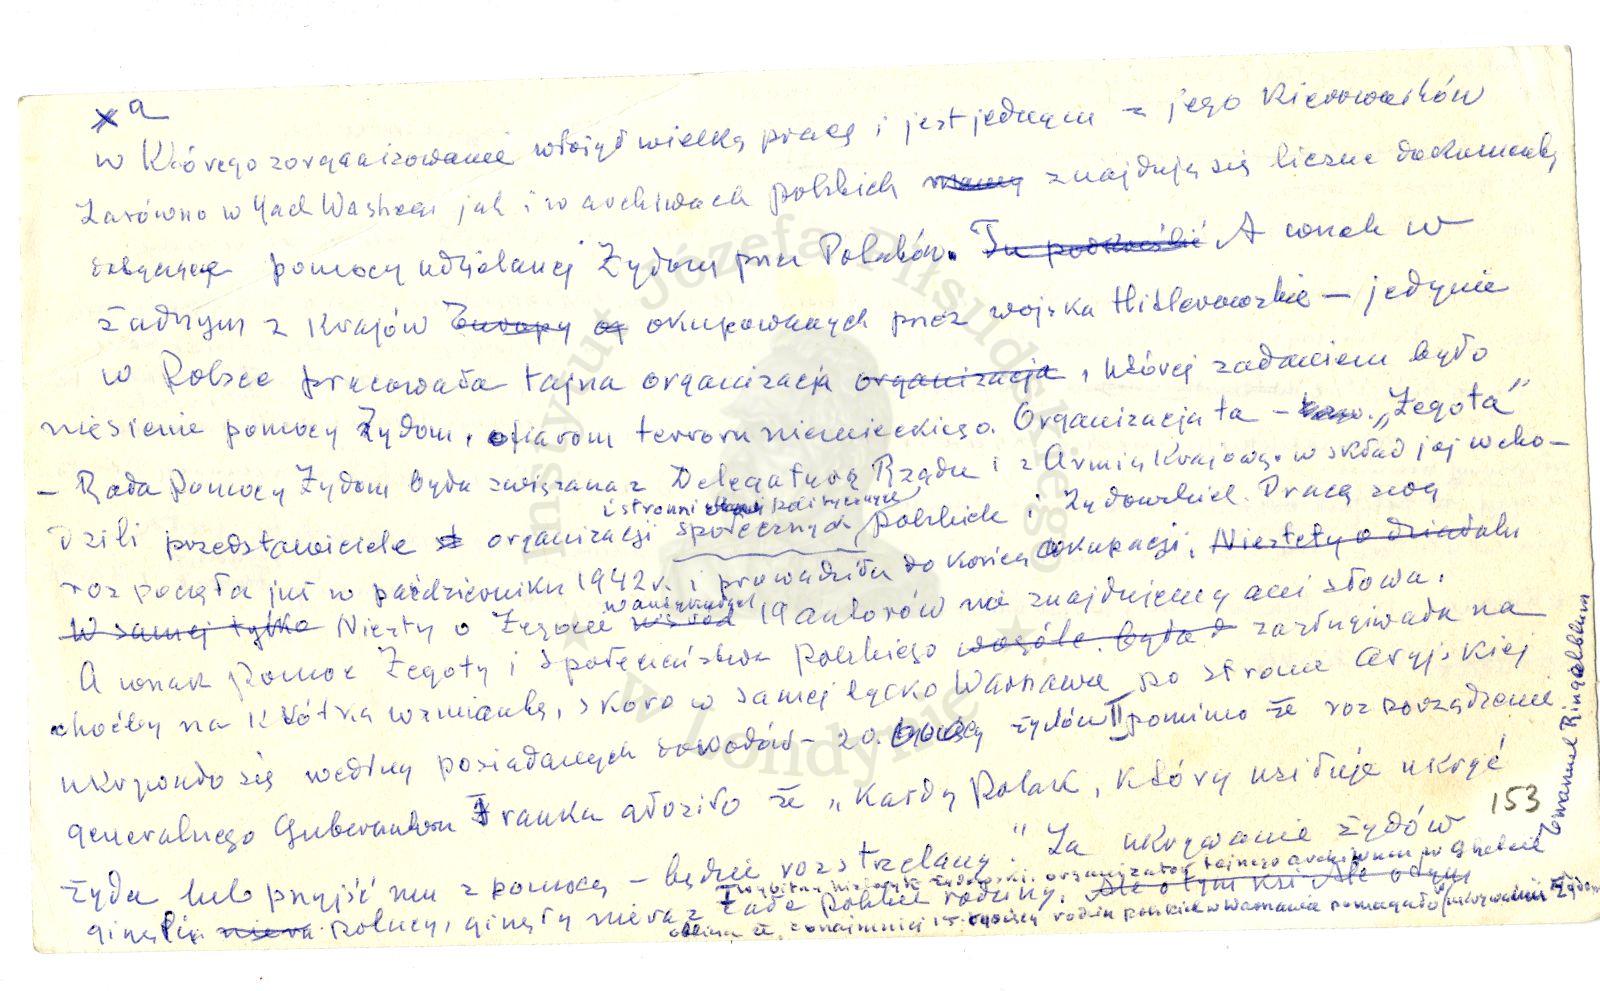 a
w którego zorganizowanie włożył wielką pracę i jest jednym z jego kierowników
Zarówno w Yad Washem jak i w archiwach polskich mamy znajdują się liczne dokumenty
dotyczące pomocy udzielanej Żydom przez Polaków. Tu podkreślić A wszak w
żadnym z krajów Europy okupowanych przez wojska Hitlerowskie – jedynie
w Polsce pracowała tajna organizacja organizacja, której zadaniem było
niesienie pomocy Żydom, ofiarom terroru niemieckiego. Organizacja ta – „Żegota”
– Rada Pomocy Żydom była związana z Delegaturą Rządu i z Armią Krajową. w skład jej wcho-
i stronnictw politycznych
dzili przedstawiciele organizacji społecznych polskich i żydowskich. Pracę swą
rozpoczęła już w październiku 1942 r. i prowadziła do końca okupacji. Niestety o działalu
w artykułach
W samej tylko Niestety o Żegocie wśród 19 autorów nie znajdujemy ani słowa.
A wszak pomoc Żegoty i społeczeństwa polskiego wogóle była zasługiwała na
choćby na krótką wzmiankę, skoro w samej tylko Warszawie po stronie aryjskiej
ukrywało się według posiadanych dowodów – 20. tysięcy żydów pomimo że rozporządzenie
generalnego Gubernatora Franka głosiło że „każdy Polak, który usiłuje ukryć
żyda lub przyjść mu z pomocą – będzie rozstrzelany.” Za ukrywanie żydów
wybitny historyk żydowski, organizator tajnego archiwum w Ghetcie
ginęli Polacy, ginęły nieraz całe polskie rodziny. Ale o tym
oblicza że conajmniej 15 tysięcy rodzin polskich w Warszawie pomagało ukrywaniu Żydów
Emanuel Ringelblum
153
Instytut Józefa Piłsudskiego
w Londynie